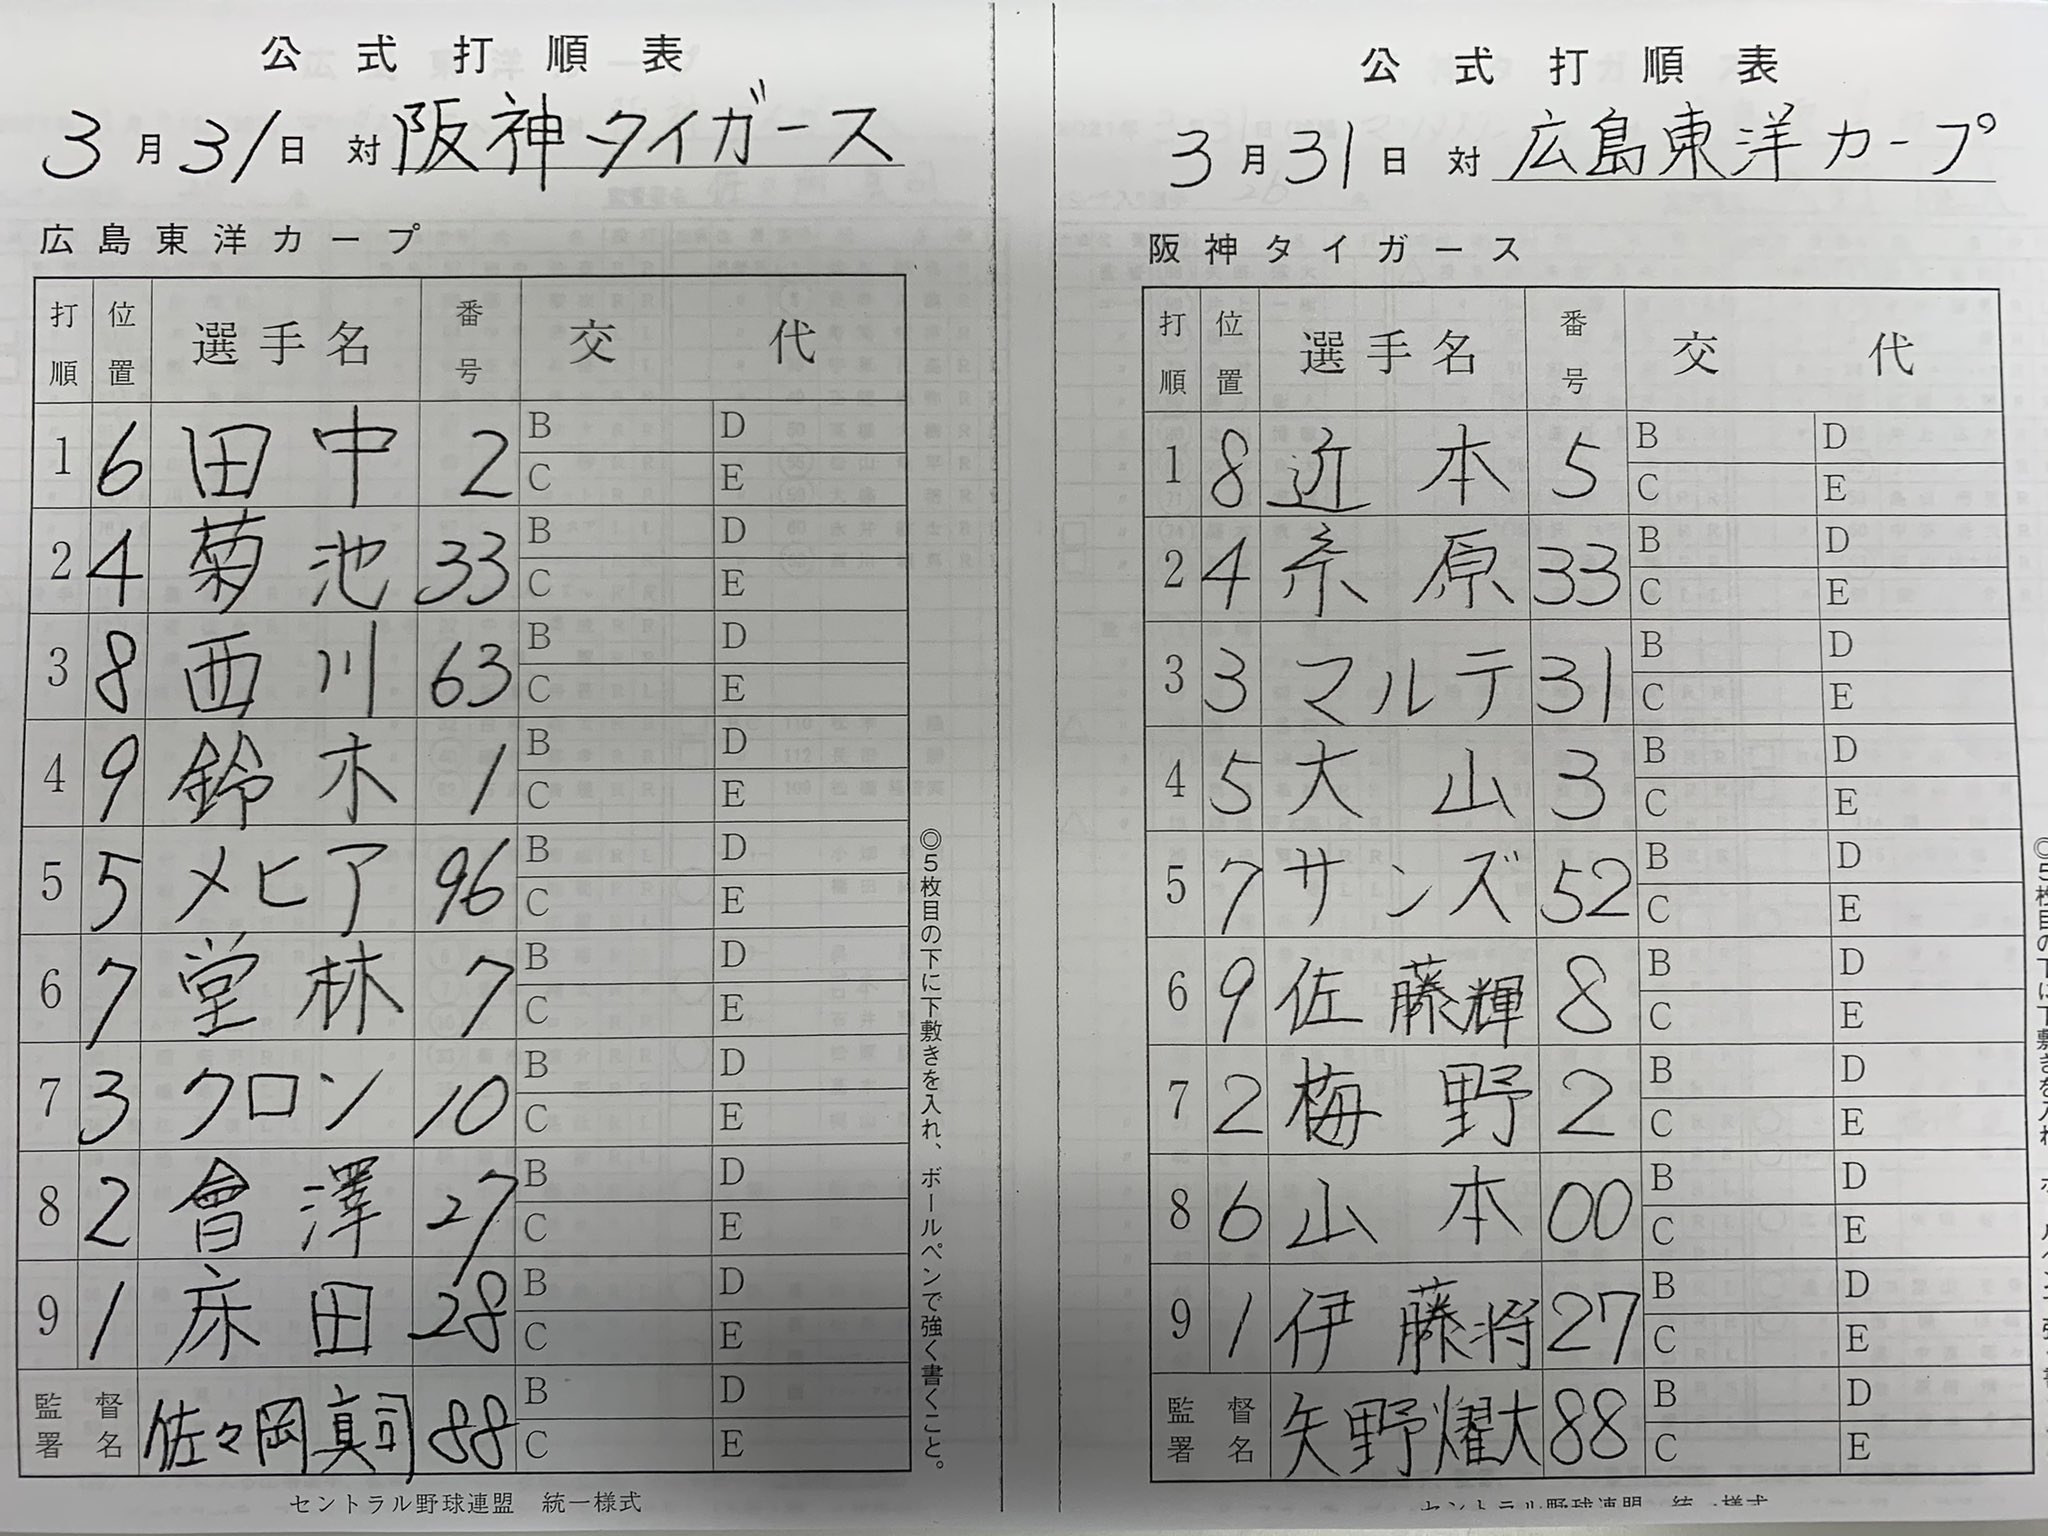 公式打順表
3月31日 対 阪神タイガース
広島東洋カープ
打順 位置 選手名 番号 交代
1 6 田中 2 B D
C E
2 4 菊池 33 B D
C E
3 8 西川 63 B D
C E
4 9 鈴木 1 B D
C E
5 5 メヒア 96 B D
C E
6 7 堂林 7 B D
C E
7 3 クロン 10 B D
C E
8 2 會澤 27 B D
C E
9 1 床田 28 B D
C E
監督署名 佐々岡真司 88 B D
C E
◎5枚目の下に下敷きを入れ、ボールペンで強く書くこと。
セントラル野球連盟 統一様式
公式打順表
3月31日 対 広島東洋カープ
阪神タイガース
打順 位置 選手名 番号 交代
1 8 近本 5 B D
C E
2 4 糸原 33 B D
C E
3 3 マルテ 31 B D
C E
4 5 大山 3 B D
C E
5 7 サンズ 52 B D
C E
6 9 佐藤輝 8 B D
C E
7 2 梅野 2 B D
C E
8 6 山本 00 B D
C E
9 1 伊藤将 27 B D
C E
監督署名 矢野燿大 88 B D
C E
セントラル野球連盟 統一様式